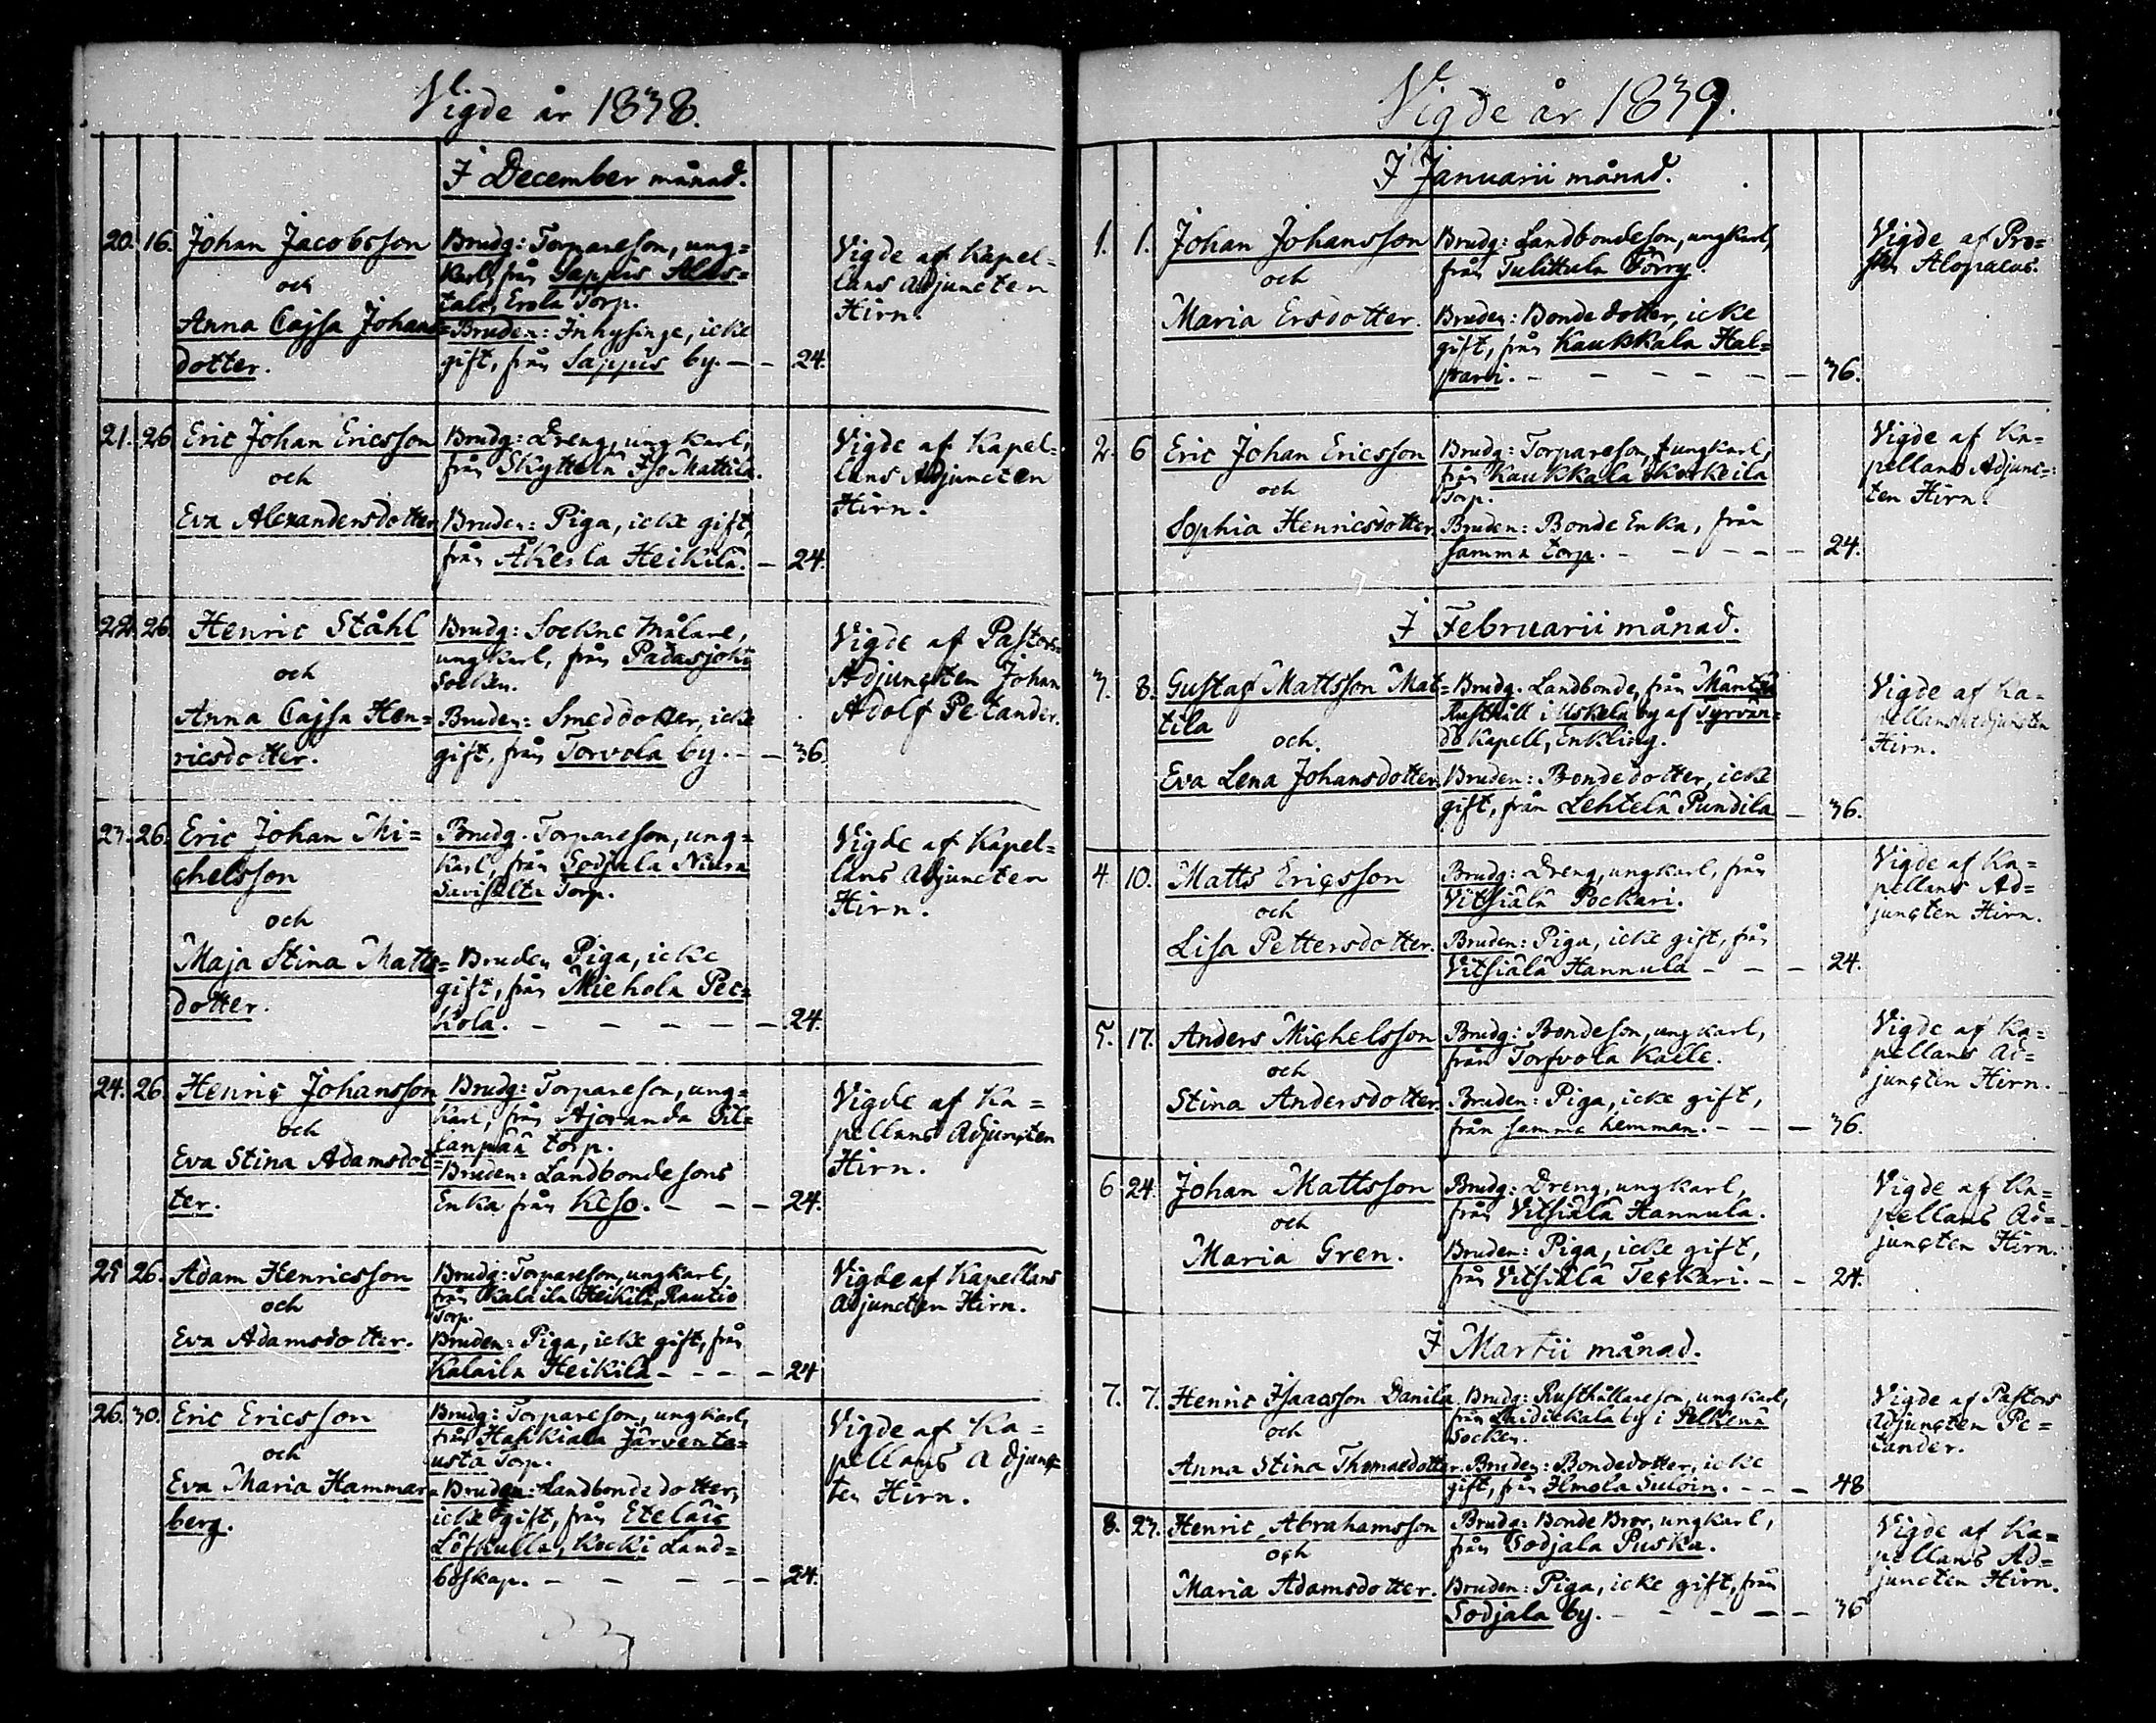 Vigde år 1838.
I December månad.
20. 16. Johan Jacobsson
och
Anna Cajsa Johans=
dotter.
Brudg: Torpareson, ung=
karl, från Sappis Alas=
talo, Erola Torp.
Bruden: Inhysinge, icke
gift, från Sappis by. — — 24.
Vigde af Kapel=
lans Adjuncten
Hirn.
21. 26. Eric Johan Ericsson
och
Eva Alexandersdotter
Brudg: Dreng, ungkarl,
från Skyttelä Iso Mattila.
Bruden: Piga, icke gift,
från Åkerla Heikilä. — 24.
Vigde af Kapel=
lans Adjuncten
Hirn.
22. 26. Henric Ståhl
och
Anna Cajsa Hen=
ricsdotter.
Brudg: Sockne Målare,
ungkarl, från Padasjoki
Socken.
Bruden: Smeddotter, icke
gift, från Torvola by. — — 36
Vigde af Pastors
Adjuncten Johan
Adolf Petander.
23. 26. Eric Johan Mi=
chelsson
och
Maja Stina Matts=
dotter.
Brudg. Torpareson, ung=
karl, från Sodjala
Savisilta Torp.
Bruden Piga, icke
gift, från Miehola Pec=
kola. — — — — — 24.
Vigde af Kapel=
lans Adjuncten
Hirn.
24. 26. Henric Johansson
och
Eva Stina Adamsdot=
ter.
Brudg: Torpareson, ung=
karl, från Ajoranda Sil=
tanpää torp.
Bruden: Landbondesons
Enka från Keso. — — — 24.
Vigde af Ka=
pellans Adjuncten
Hirn.
25 26. Adam Henricsson
och
Eva Adamsdotter.
Brudg: Torpareson, ungkarl,
från Kalaila Heikilä, Rautio
Torp.
Bruden: Piga, icke gift, från
Kalaila Heikilä — — — — 24
Vigde af Kapellans
Adjuncten Hirn.
26. 30. Eric Ericsson
och
Eva Maria Hammar=
berg.
Brudg: Torpareson, ungkarl,
från Hahkiala Järventa=
usta Torp.
Bruden: Landbonde dotter,
icke gift, från Eteläis
Löfkulla, Kocki Land=
boskap. — — — — — 24.
Vigde af Ka=
pellans Adjunc=
ten Hirn.
Vigde år 1839.
I Januarii månad.
1. 1. Johan Johansson
och
Maria Ersdotter.
Brudg: Landbondeson, ungkarl,
från Tulittula Törry.
Bruden: Bonde dotter, icke
gift, från Kaukkala Hal=
pari. — — — — — — 36.
Vigde af Pro=
sten Alopaeus.
2. 6 Eric Johan Ericsson
och
Sophia Henricsdotter.
Brudg: Torpareson, ungkarl,
från Kaukkala Koskeila
Torp.
Bruden: Bonde Enka, från
samma torp. — — — — — 24.
Vigde af Ka=
pellans Adjunc=
ten Hirn.
I Februarii månad.
3. 8. Gustaf Mattsson Mat=
tila
och
Eva Lena Johansdotter
Brudg. Landbonde, från
Rusthåll i Uskela by af Tyrvän=
dö Kapell, Enkling.
Bruden: Bondedotter, icke
gift, från Lehtelä Pundila — 36.
Vigde af Ka=
pellans Adjuncten
Hirn.
4. 10. Matts Ericsson
och
Lisa Pettersdotter.
Brudg: Dreng, ungkarl, från
Vitsiälä Pockari.
Bruden: Piga, icke gift, från
Vitsiälä Hannula — — — 24.
Vigde af Ka=
pellans Ad=
juncten Hirn.
5. 17. Anders Michelsson
och
Stina Andersdotter.
Brudg: Bondeson, ungkarl,
från Torfvola Kalle.
Bruden: Piga, icke gift,
från samma hemman. — — — 36.
Vigde af Ka=
pellans Ad=
juncten Hirn.
6 24. Johan Mattsson
och
Maria Gren.
Brudg: Dreng, ungkarl,
från Vitsiälä Hannula.
Bruden: Piga, icke gift,
från Vitsiälä Teckari. — — 24.
Vigde af Ka=
pellans Ad=
juncten Hirn.
I Martii månad.
7. 7. Henric Isaacsson Danila
och
Anna Stina Thomaedotter.
Brudg: Rusthållareson, ungkarl,
från Laidickala by i Pelkena
Socken.
Bruden: Bondedotter, icke
gift, från Ilmola Suloin. — — — 48
Vigde af Pastors
Adjuncten Pe=
tander.
8. 23. Henric Abrahamsson
och
Maria Adamsdotter.
Brudg: Bonde Bror, ungkarl,
från Sodjala Puska.
Bruden: Piga, icke gift, från
Sodjala by. — — — — — 36
Vigde af Ka=
pellans Ad=
juncten Hirn.